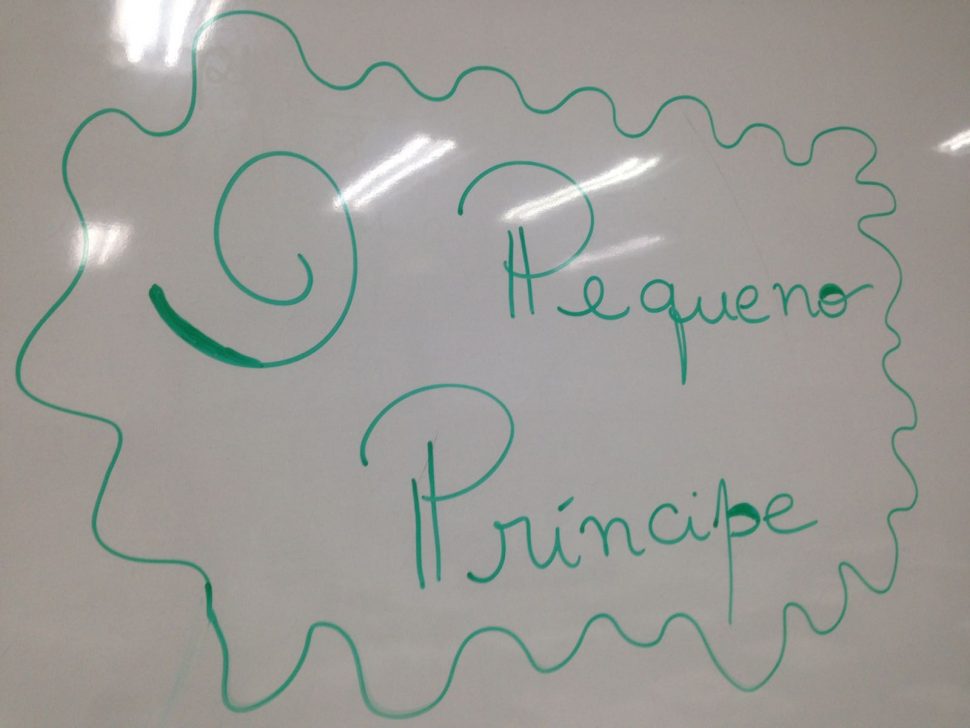 O Pequeno
Príncipe